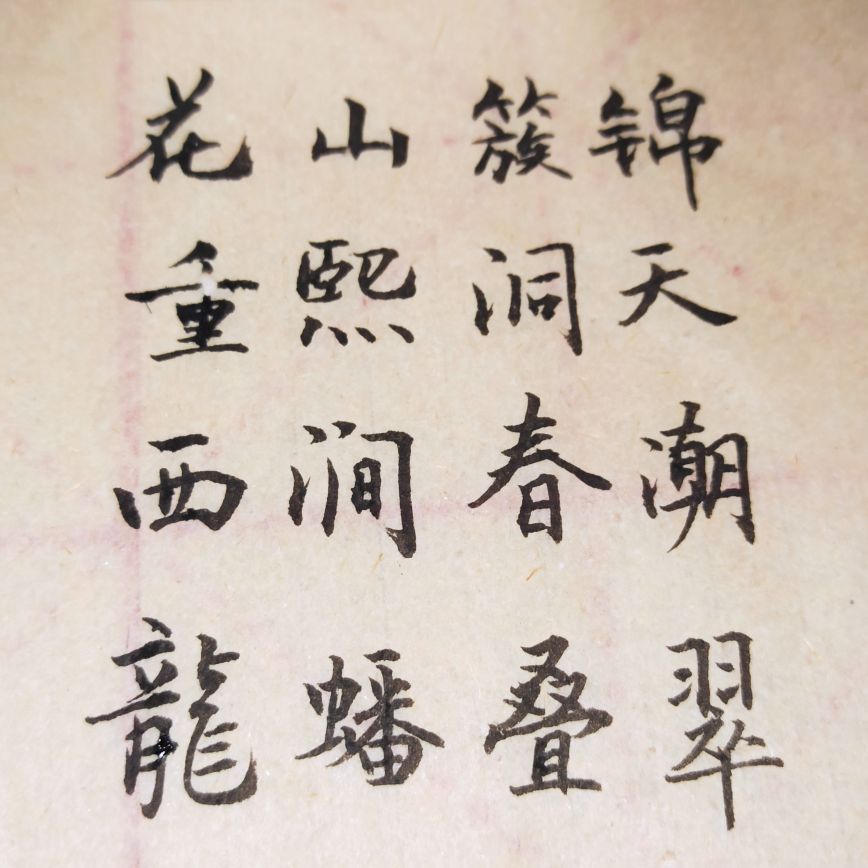 花山簇锦
重熙洞天
西涧春潮
龍蟠叠翠